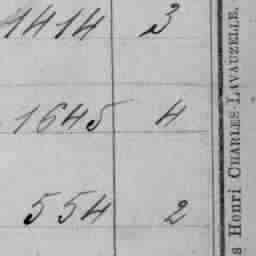 1414 3
1645 4
554 2
s Henri CHARLES-LAVAUZELLE.